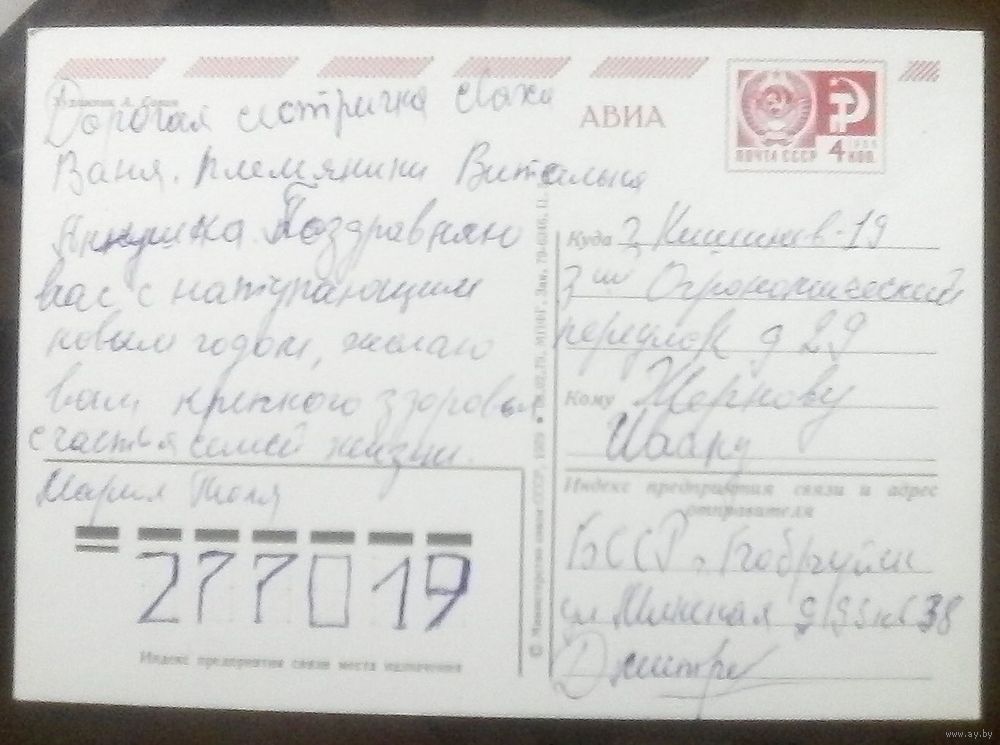 Художник А. Савин
АВИА
ПОЧТА СССР 4 КОП.
Дорогая сестричка
Ваня. племянники Виталик
Поздравляю
вас с наступающим
новым годом, желаю
вам крепкого здоровья
счастья семей жизни.
Мария Толя
Куда г. Кишинев-19
3ий Огрономический
переулок д 29
Кому Жернову
Ивану
Индекс предприятия связи и адрес
отправителя
БССР г. Бобруйск
ул Минская д 95 кв 38
277019
Индекс предприятия связи места назначения
© Министерство связи СССР, 1979
www.ay.by